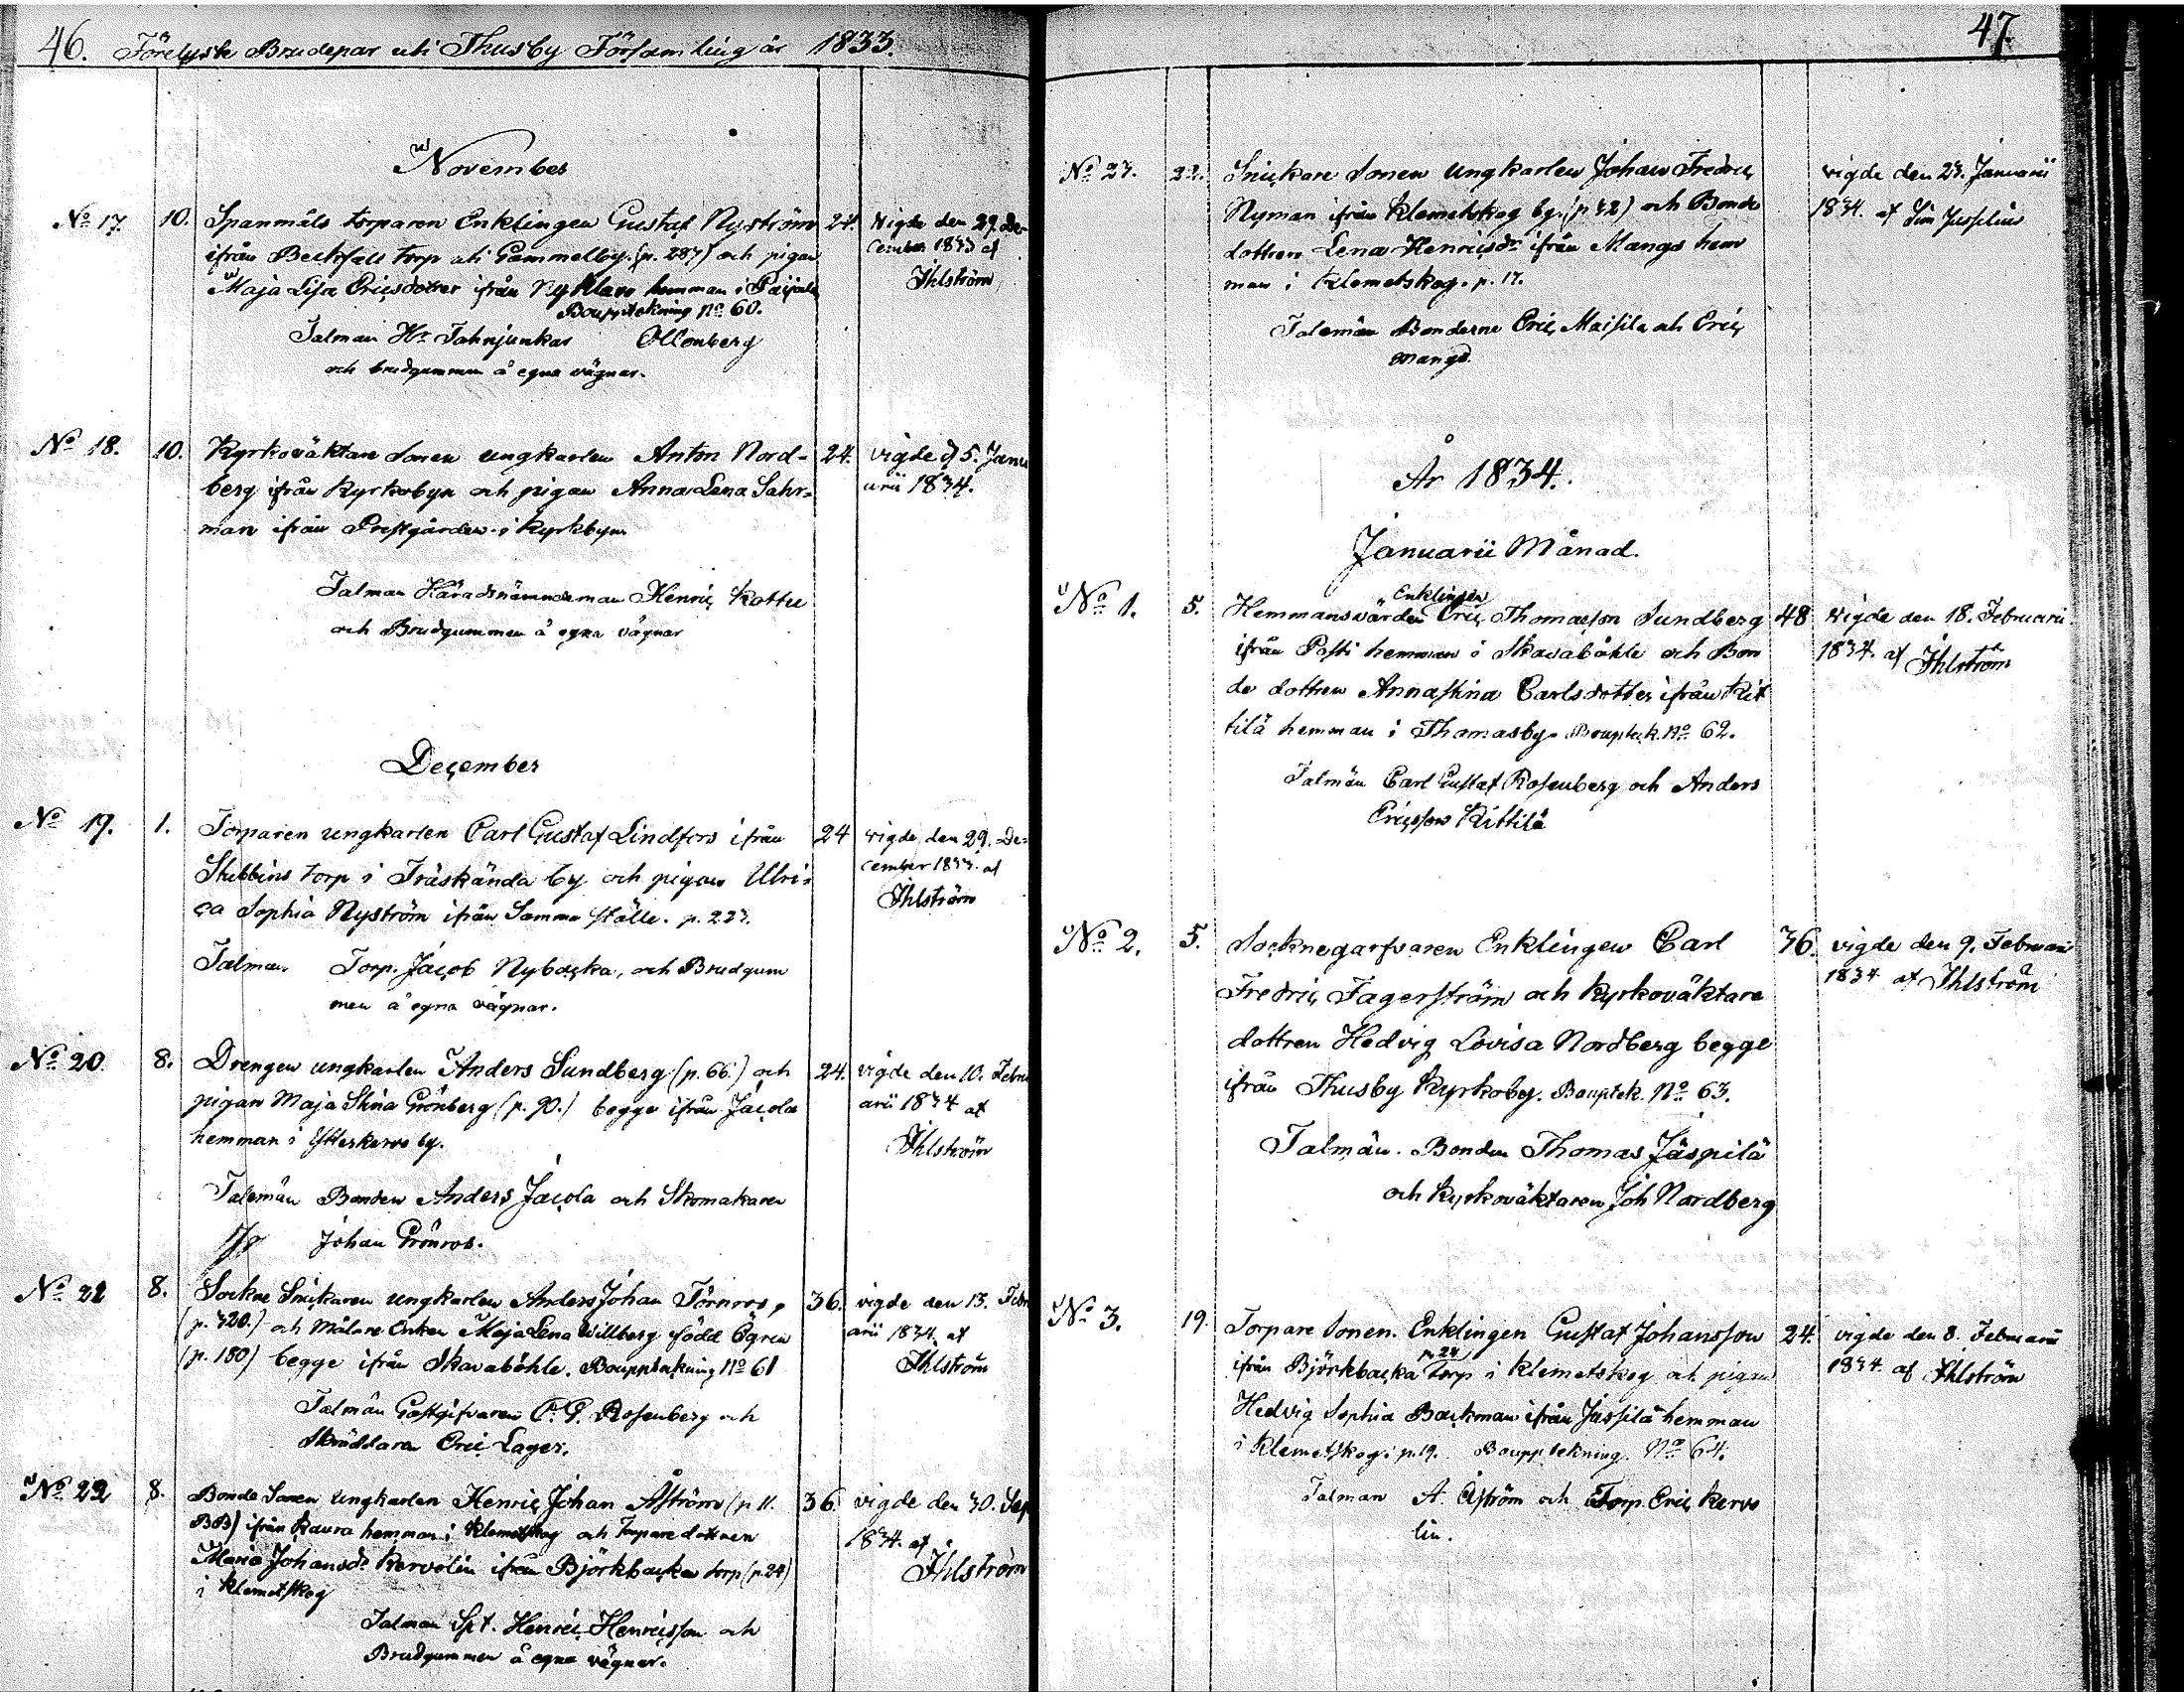 46. Förelyste Brudepar uti Thusby Församling år 1833.
November
No 17. 10. Spanmåls torparen Enklingen Gustaf Nyström 24. Vigde den 29. De-
ifrån torp uti Gammelby. (p. 287) och pigan cember 1833 af
Maja Lisa Ericsdotter ifrån Ny Klavo hemman i Paijala Ihlström
Bouppteckning No 60.
Talman Hr Fahnjunkar
och brudgummen å egna vägnar.
No 18. 10. Kyrkoväktare Sonen ungkarlen Anton Nord- 24. vigde d 5. Janu
berg ifrån Kyrkobyn och pigan Anna Lena Sahr- arii 1834.
man ifrån Prestgården i Kyrkbyn
Talman Häradsnämndeman Henric Kottu
och Brudgummen å egna vägnar
December
No 19. 1. Torparen ungkarlen Carl Gustaf Lindfors ifrån 24 vigde den 29. De-
Stubbins torp i Träskända by och pigan Ulri- cember 1833. af
ca Sophia Nyström ifrån Samma ställe. p. 223. Ihlström
Talman Torp. Jacob Nybacka, och Brudgum
men å egna vägnar.
No 20. 8. Drengen ungkarlen Anders Sundberg (p. 66.) och 24. vigde den 10. Febru
pigan Maja Stina Grönberg (p. 90.) begge ifrån Jacola arii 1834 af
hemman i Ytterkervo by. Ihlström
Talemän Bonden Anders Jacola och Skomakaren
Johan Grönros.
No 21 8. Sockne Snickaren ungkarlen Anders Johan Törnros, 36. vigde den 13. Febr
(p. 320.) och Målare Enkan Maja Lena Willberg född Ögren arii 1834. af
(p. 180) begge ifrån Skavaböhle. Bouppteckning No 61 Ihlström
Talmän Gästgifvaren C. G. Rosenberg och
Skräddaren Eric Lager.
No 22 8. Bonde Sonen ungkarlen Henric Johan Åström (p 11. 36 vigde den 30. Sep
BB) ifrån Kaura hemman i Klemetskog och Torpare dottren 1834. af
Maria Johansdr Kervolin ifrån Björkbacka torp (p. 24) Ihlström
i Klemetskog
Talman Spt. Henric Henricsson och
Brudgummen å egna vägnar.
47.
No 23. 22. Snickare Sonen ungkarlen Johan Fredric vigde den 23. Januarii
Nyman ifrån Klemetskog by. (p 32) och Bonde 1834. af
dottren Lena Henricsdr ifrån Mangs hem
man i Klemetskog. p. 17.
Talemän Bönderne Eric Maisila och Eric
Mangs.
År 1834.
Januarii Månad.
Enklingen
No 1. 5. Hemmansvärden Eric Thomasson Sundberg 48 vigde den 18. Februarii
ifrån Posti hemman i Skavaböhle och Bon 1834. af Ihlström
de dottren Annastina Carlsdotter ifrån Kit
tilä hemman i Thomasby. Bouptek. No 62.
Talmän Carl Gustaf Rosenberg och Anders
Ericsson Kittilä
No 2. 5. Socknegarfvaren Enklingen Carl 36. vigde den 9. Februarii
Fredric Fagerström och Kyrkoväktare 1834 af Ihlström
dottren Hedvig Lovisa Nordberg begge
ifrån Thusby Kyrkoby. Bouptek. No 63.
Talmän. Bonden Thomas Jäspilä
och Kyrkoväktaren Joh Nordberg
No 3. 19. Torpare Sonen. Enklingen Gustaf Johansson 24. vigde den 8. Februarii
p. 24
ifrån Björkbacka Torp i Klemetskog och pigan 1834. af Ihlström
Hedvig Sophia Backman ifrån Jussila hemman
i Klemetskog. p. 19. Bouppteckning. No 64.
Talman A. Åström och Torp. Eric Kervo
lin.